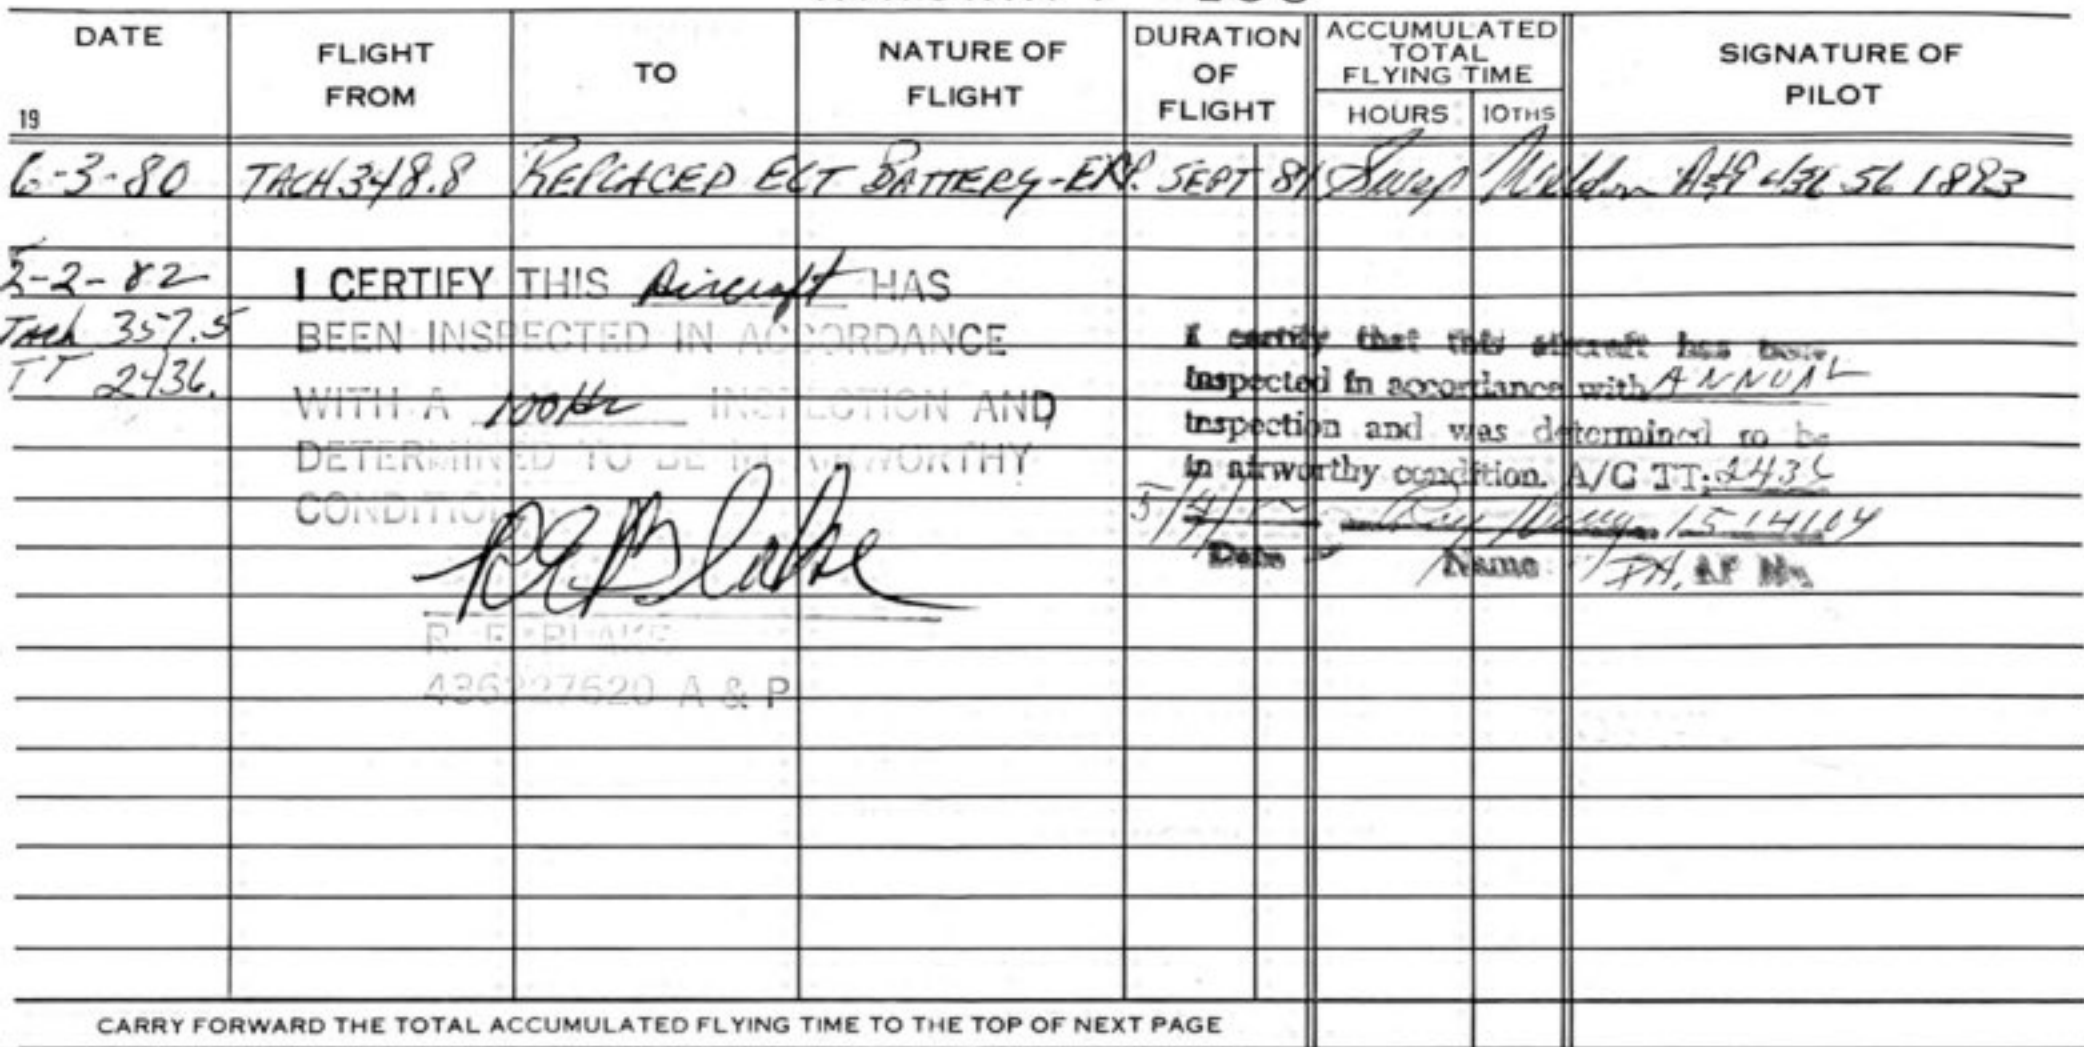 DATE FLIGHT FROM TO NATURE OF FLIGHT DURATION OF FLIGHT ACCUMULATED TOTAL FLYING TIME HOURS 10THS SIGNATURE OF PILOT
19
6-3-80 TACH 348.8 REPLACED ELT BATTERY-EXP. SEPT 81 A&P 436 56 1893
5-2-82
Tach 357.5
TT 2436.
I CERTIFY THIS Aircraft HAS
BEEN INSPECTED IN ACCORDANCE
WITH A 100 Hr INSPECTION AND
DETERMINED TO BE IN AIRWORTHY
CONDITION
RE Blake
R. E. BLAKE
436227620 A & P
I certify that this aircraft has been
inspected in accordance with ANNUAL
inspection and was determined to be
in airworthy condition. A/C TT: 2436
Ray 1514104
Date Name IA, AP No.
CARRY FORWARD THE TOTAL ACCUMULATED FLYING TIME TO THE TOP OF NEXT PAGE